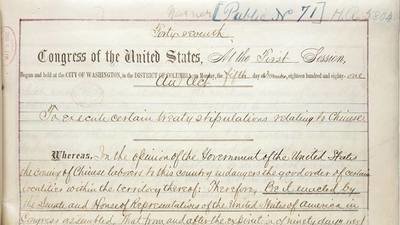 [Public No 71] H.R. 5804
Forty-seventh
Congress of the United States, At the First Session,
Begun and held at the CITY OF WASHINGTON, in the DISTRICT OF COLUMBIA, on Monday, the fifth day of December, eighteen hundred and eighty-one
An Act
To execute certain treaty stipulations relating to Chinese.
Whereas, In the opinion of the Government of the United States
the coming of Chinese laborers to this country endangers the good order of certain
localities within the territory thereof: Therefore, Be it enacted by
the Senate and House of Representatives of the United States of America in
Congress assembled, That from and after the expiration of ninety days next